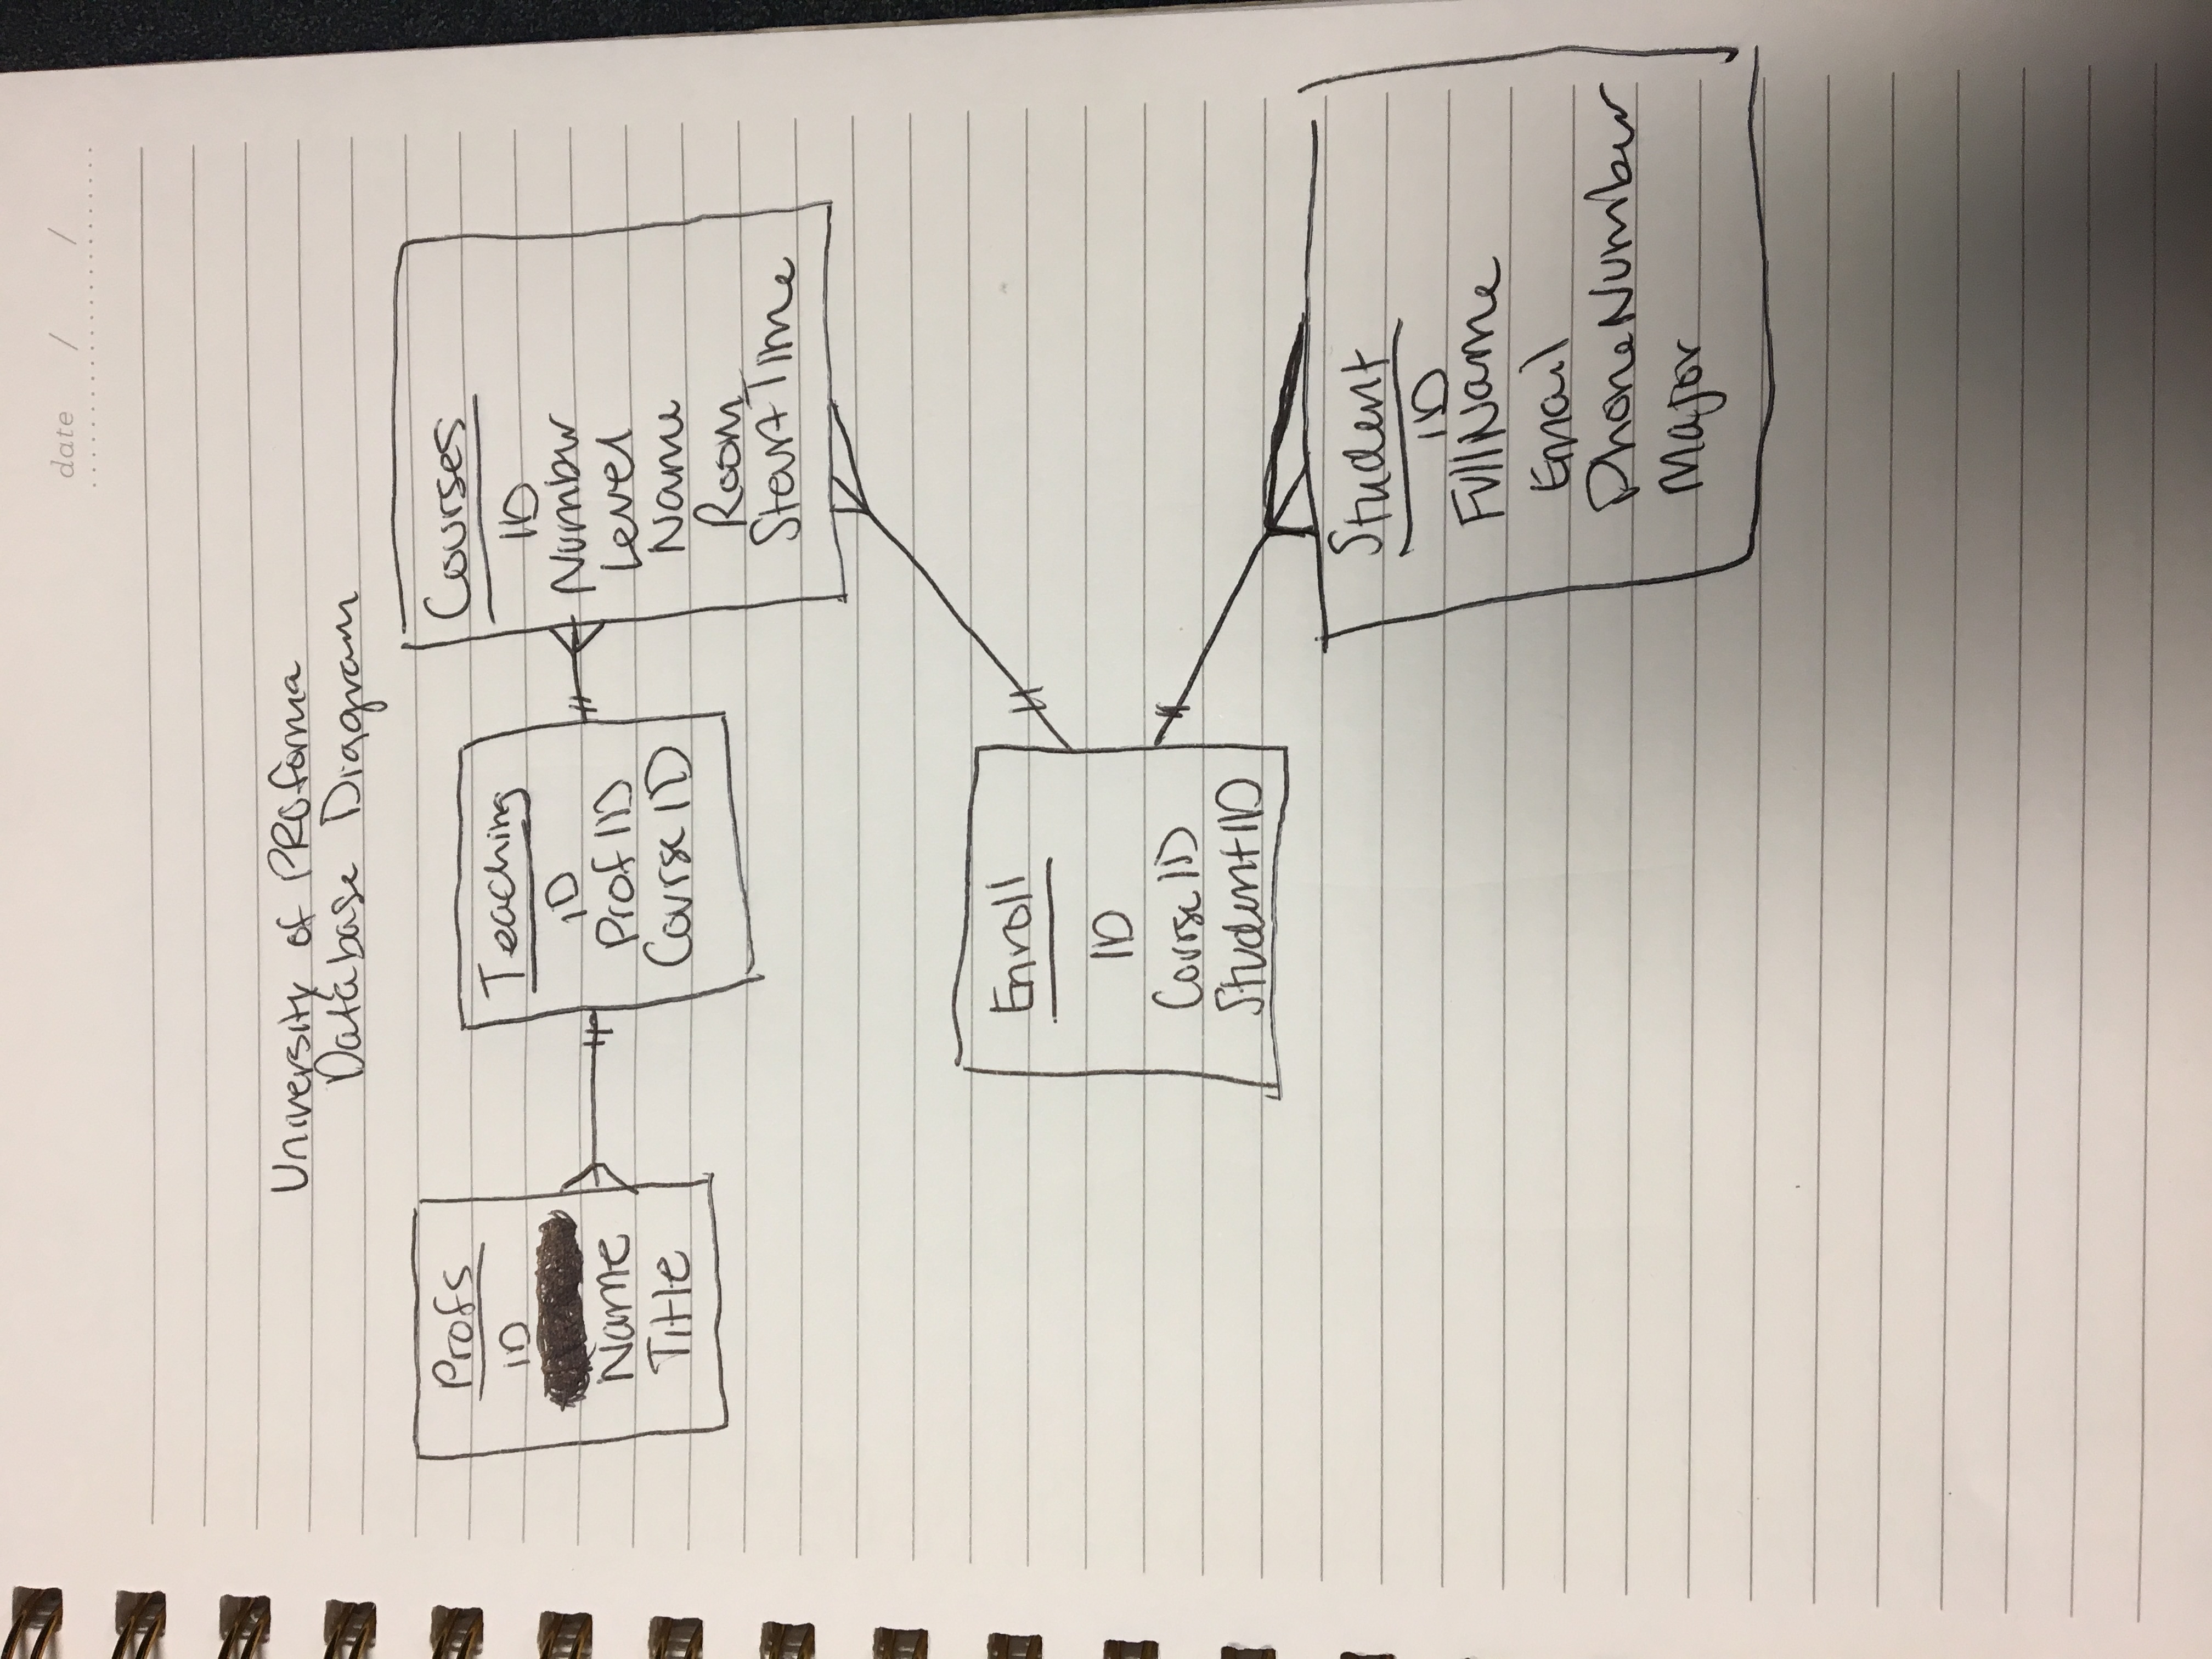 date / /
University of PROforma
Database Diagram
Profs
ID
Name
Title
Teaching
ID
ProfID
CourseID
Courses
ID
Number
Level
Name
Room
StartTime
Enroll
ID
CourseID
StudentID
Student
ID
FullName
Email
PhoneNumber
Major